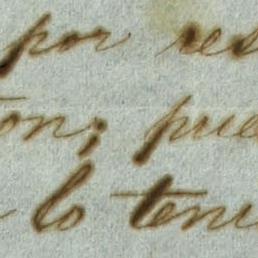 por res
on; pue
lo teni